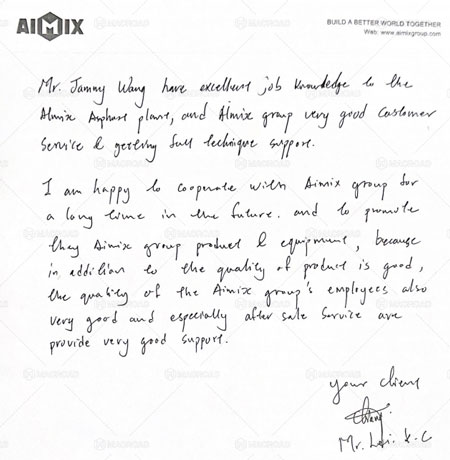 AIMIX
BUILD A BETTER WORLD TOGETHER
Web: www.aimixgroup.com
Mr. Jammy Wang have excellent job knowledge to the
Aimix Asphast plant, and Aimix group very good Customer
Service & getting full technique support.
I am happy to cooperate with Aimix group for
a long time in the future. and to promote
they Aimix group product & equipment, because
in addition to the quality of product is good,
the quality of the Aimix group's employees also
very good and especially after sale Service are
provide very good support.
your client
Mr.